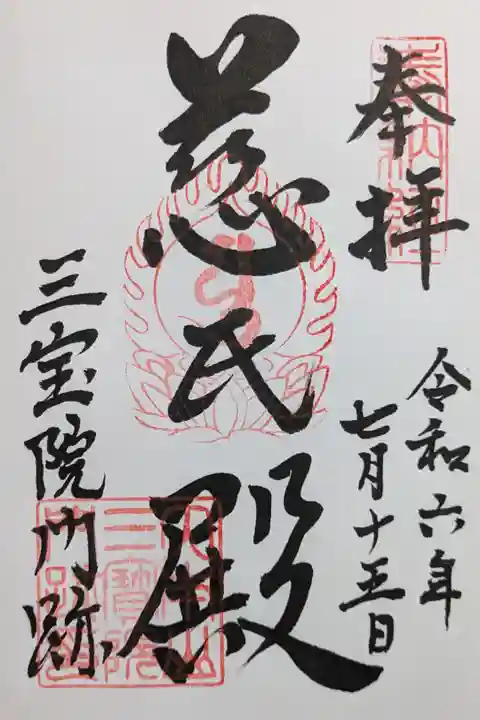 奉拝
令和六年
七月十五日
慈氏殿
三宝院門跡